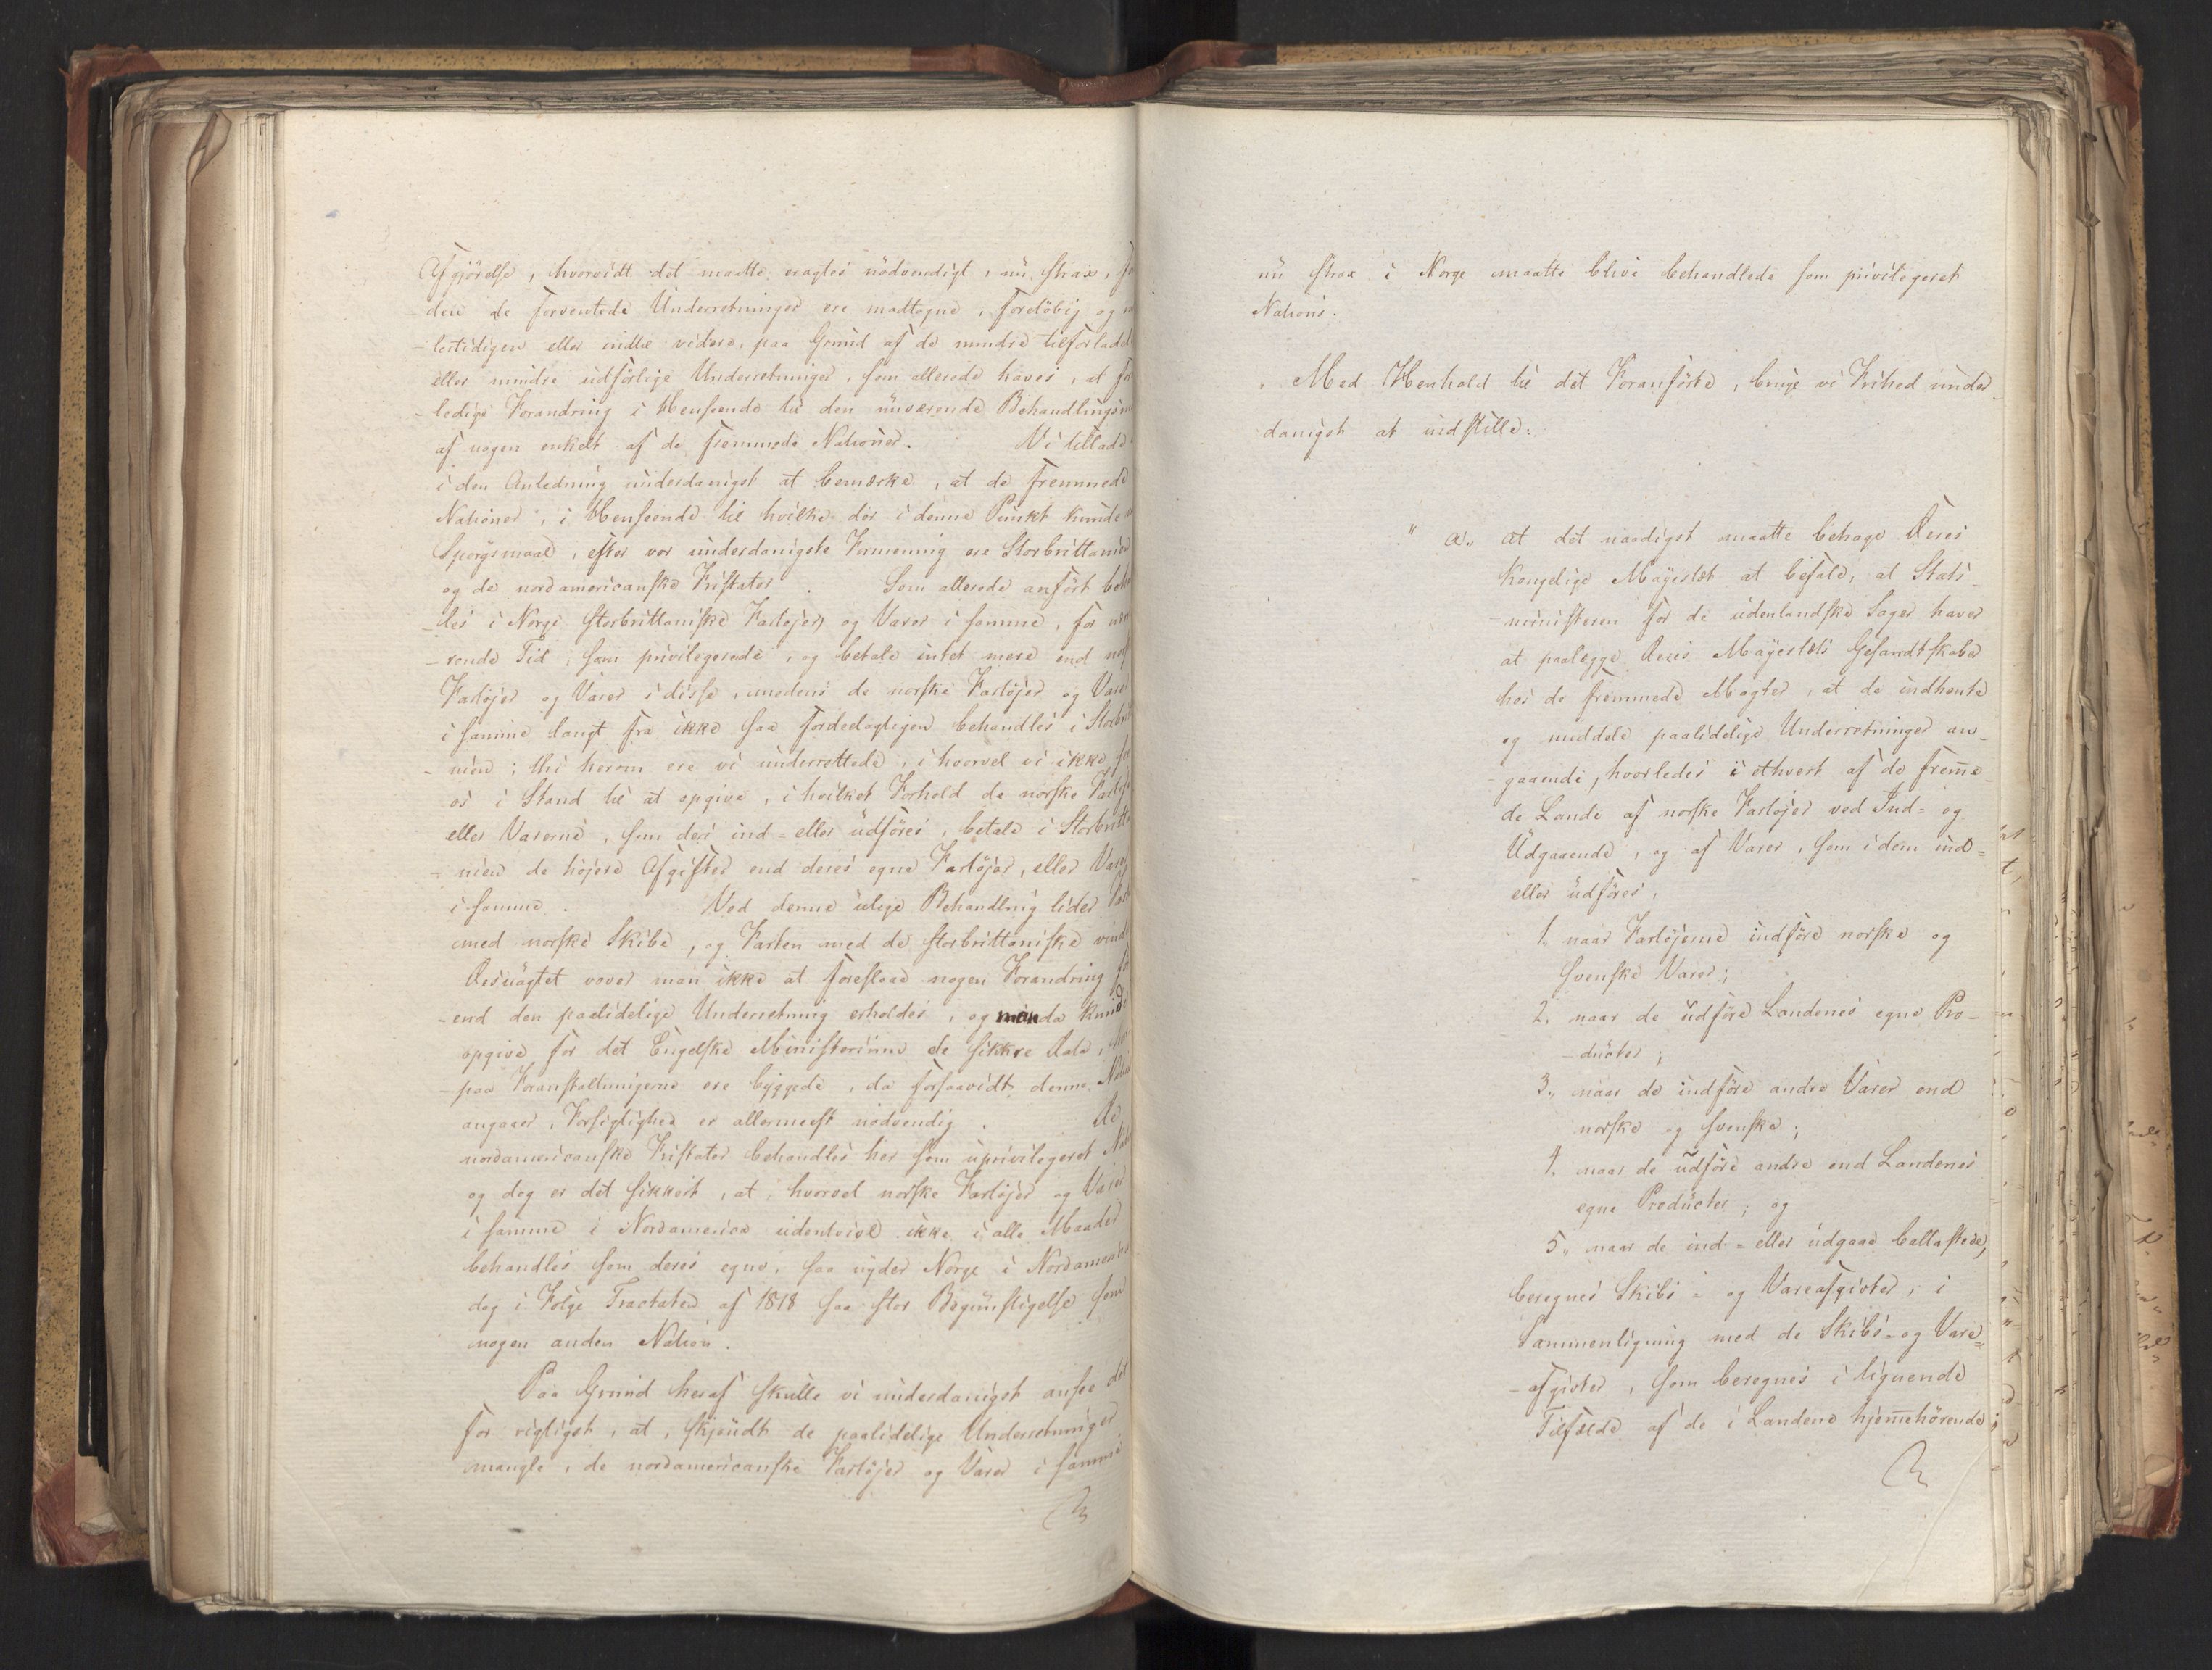 Afgjörelse, hvorvidt det maatte eragtes nödvendigt, nu strax,
den de forventede Underretninger ere modtagne, forelöbig og
-lertidigen eller indtil videre, paa Grund af de mindre tilforladel
eller mindre udförlige Underretninger, som allerede haves, at
-ledige Forandring i Henseende til den nuværende Behandlings
af nogen enkelt af de fremmede Nationer. Vi tillade
i den Anledning underdanigst at bemærke, at de fremmede
Nationer, i Henseende til hvilke der i denne Punkt kunde
Spörgsmaal, efter vor underdanigste Formening ere Storbrittanien
og de nordamericanske Fristater. Som allerede anfört
-les i Norge Storbrittaniske Fartöjer og Varer i samme, for
-rende Tid, som privilegerede, og betale intet mere end
Fartöjer og Varer i disse, medens de norske Fartöjer og Varer
i samme langt fra ikke saa fordeelagtigen behandles i Storbrit
-nien; thi herom ere vi underrettede, ihvorvel vi ikke
os i Stand til at opgive, i hvilket Forhold de norske Fartöj
eller Varerne, som deri ind- eller udföres, betale i Storbritta
-nien de höjere Afgifter end deres egne Fartöjer, eller Varer
i samme. Ved denne ulige Behandling lider Fart
med norske Skibe, og Farten med de storbrittaniske vinde
Desuagtet vover man ikke at foreslaae nogen Forandring för
-end den paalidelige Underretning erholdes, og man da kunde
opgive for det Engelske Ministerium de sikkre Data,
-paa Foranstaltningerne ere byggede, da forsaavidt denne Nation
angaaer, Forsigtighed er allermeest nödvendig. De
nordamericanske Fristater behandles her som uprivilegeret Nation
og dog er det sikkert, at, hvorvel norske Fartöjer og Varer
i samme i Nordamerica udentvivl ikke i alle Maader
behandles som deres egne, saa nyder Norge i Nordamerica
dog i Fölge Tractaten af 1818 saa stor Begunstigelse som
nogen anden Nation.
Paa Grund heraf skulle vi underdanigst ansee det
for rigtigst, at, skjöndt de paalidelige Underretninger
mangle, de nordamericanske Fartöjer og Varer i samme
nu strax i Norge maatte blive behandlede som privilegeret
Nations.
Med Henhold til det Foranförte, bruge vi Frihed under-
danigst at indstille:
" a., at det naadigst maatte behage Deres
Kongelige Mayestæt at befale, at Stats-
-ministeren for de udenlandske Sager haver
at paalegge Deres Mayestæts Gesandtskaber
hos de fremmede Magter, at de indhente
og meddele paalidelige Underretninger an-
-gaaende, hvorledes i ethvert af de frem̅e-
de Lande af norske Fartöjer ved Ind- og
Udgaaende, og af Varer, som i dem ind-
eller udföres,
1. naar Fartöjerne indföre norske og
svenske Varer;
2. naar de udföre Landenes egne Pro-
-ducter;
3., naar de indföre andre Varer end
norske og svenske;
4. naar de udföre andre end Landenes
egne Producter; og
5., naar de ind- eller udgaae ballastede,
beregnes Skibs- og Vareafgivter, i
Sammenligning med de Skibs- og Vare-
-afgivter, som beregnes i lignende
Tilfælde af de i Landene hjem̅ehörende